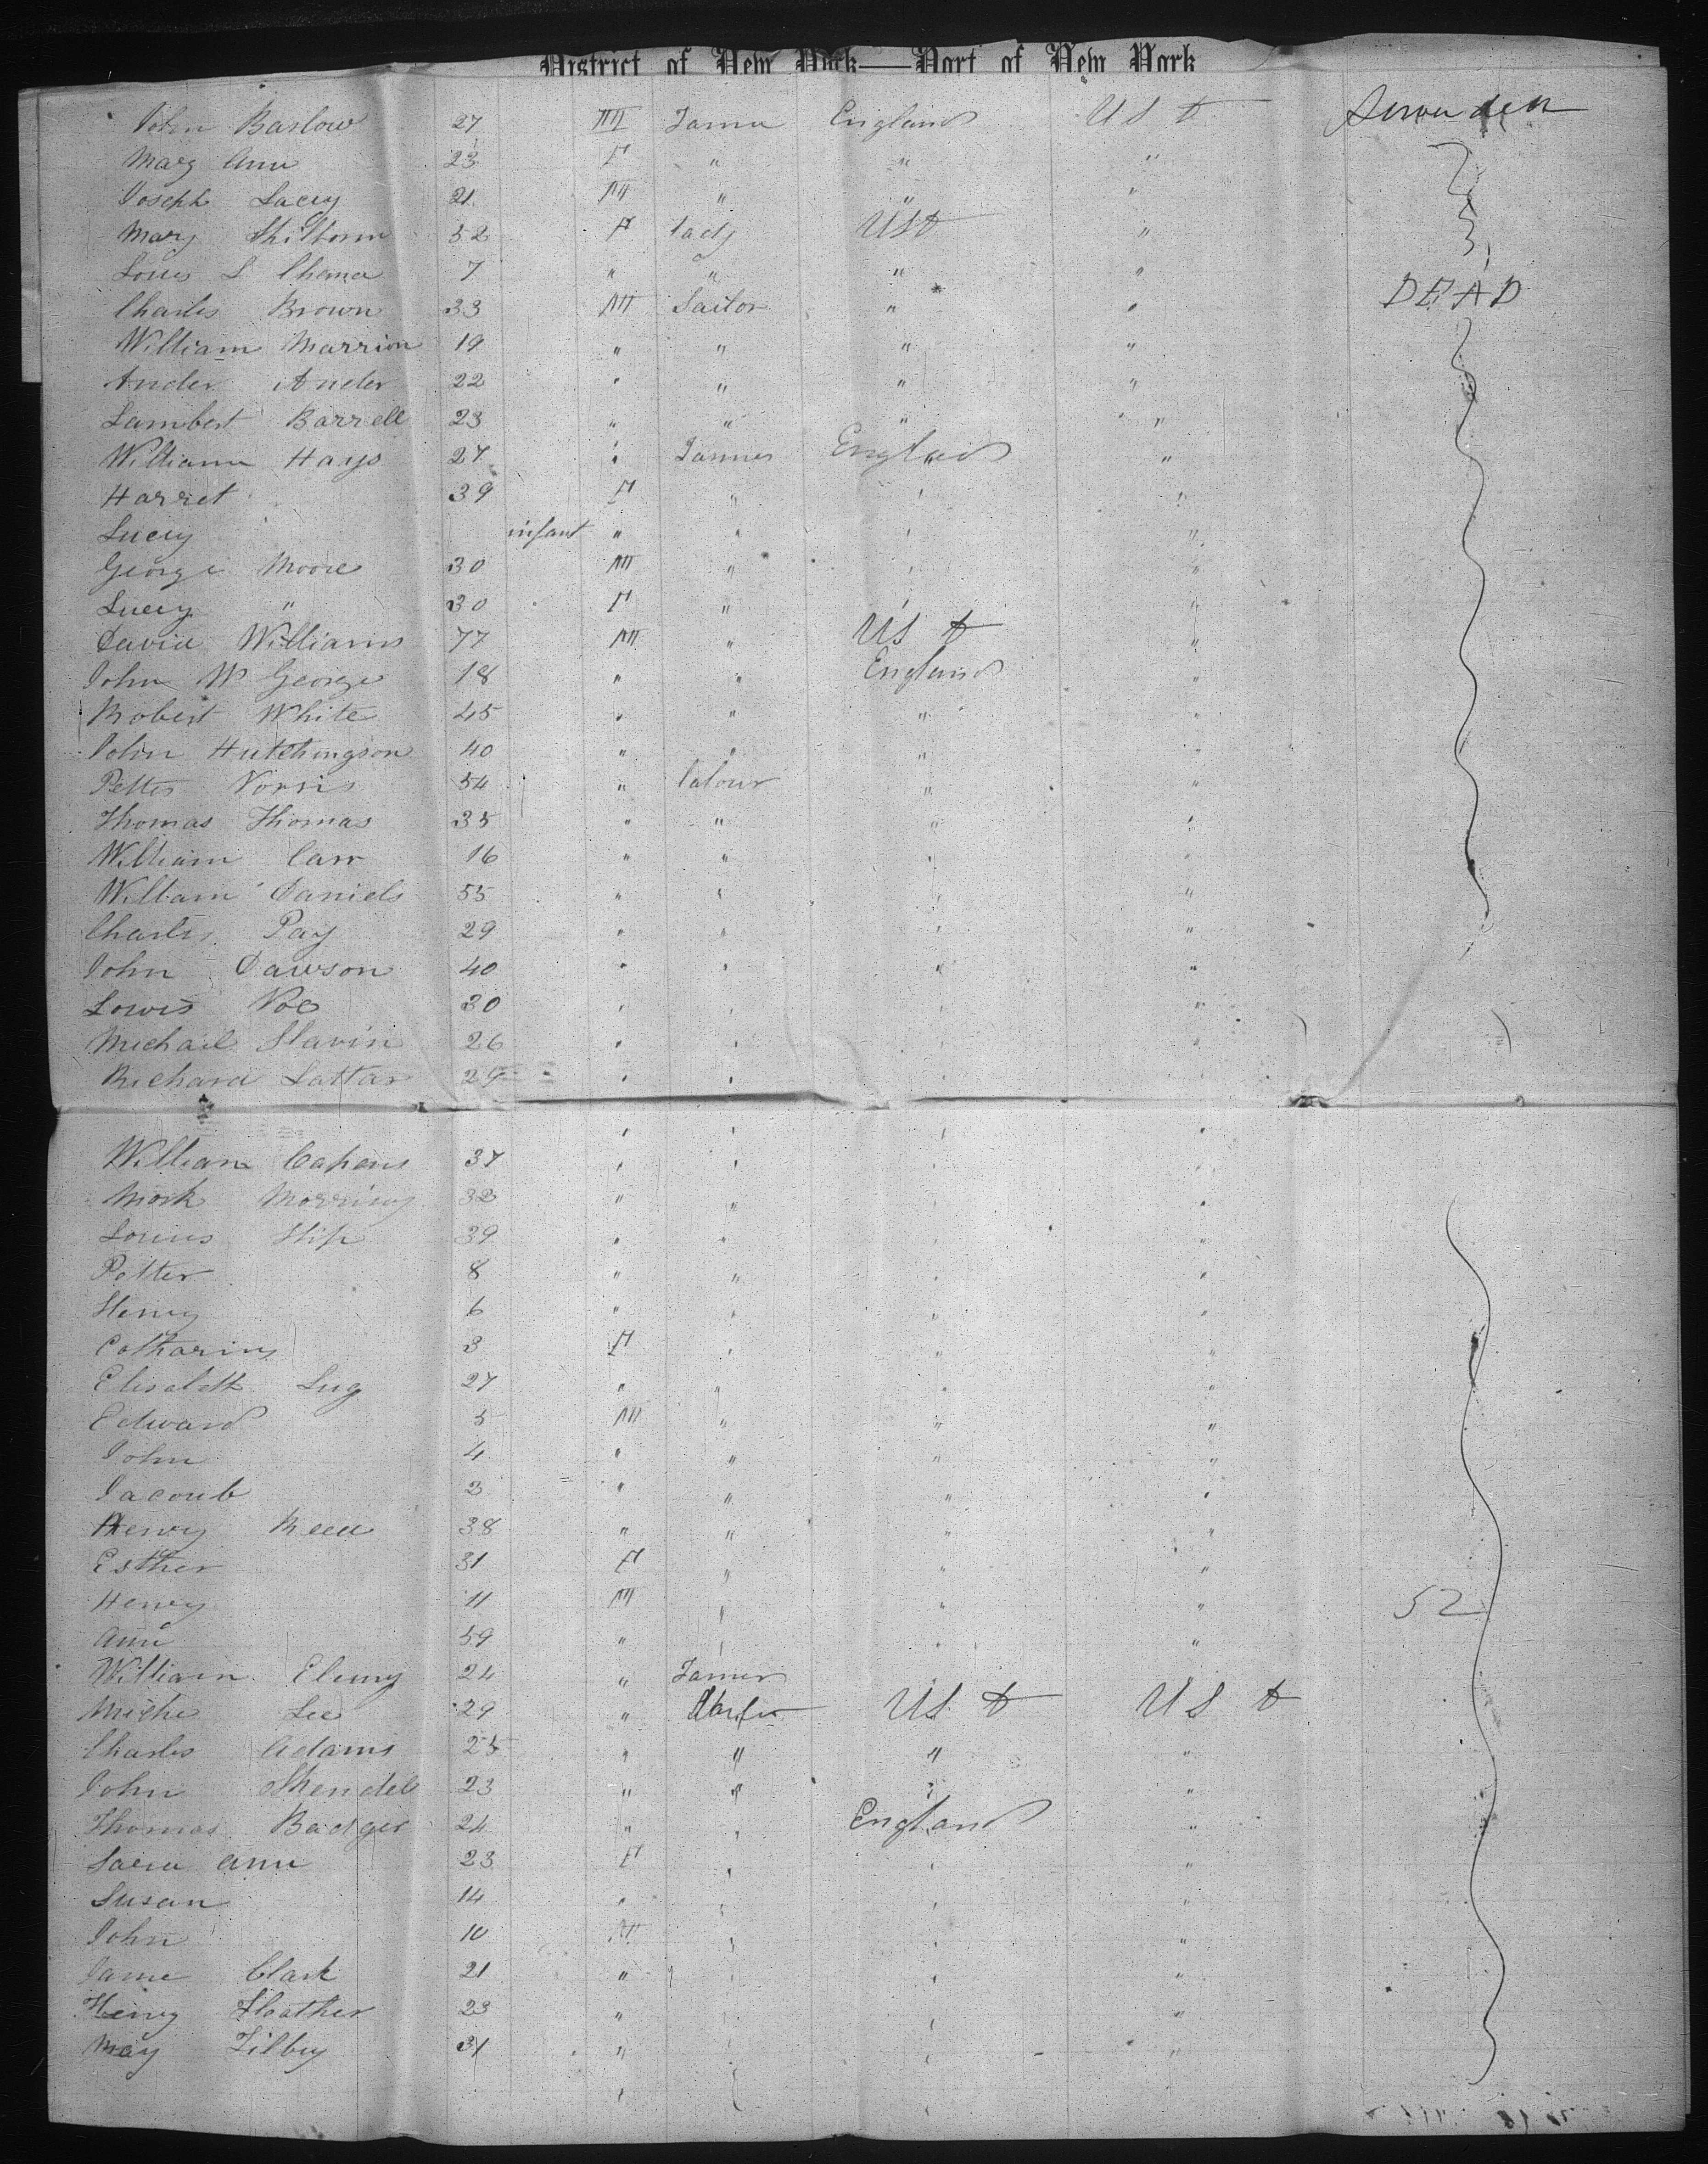 District of New York—Port of New York
John Barlow 27 M Farmer England U S A
Mary Ann 23 F " " "
Joseph Lacey 21 M " " "
Mary 52 F lady USA "
Louis L 7 " " " "
Charles Brown 33 M Sailor " " DEAD
William Marrion 19 " " " "
Ander Ander 22 " " " "
Lambert Barrell 23 " " " "
William Hays 27 " Farmer England "
Harret 39 F " " "
Lucy infant " " " "
George Moore 30 M " " "
Lucey " 30 F " " "
David Williams 77 M " US A "
John W George 18 " " England "
Robert White 45 " " " "
John Hutchingson 40 " " " "
Petter Norris 54 " labour " "
Thomas Thomas 35 " " " "
William Carr 16 " " " "
William Daniels 55 " " " "
Charles Pay 29 " " " "
John Dawson 40 " " " "
Lowis Noe 30 " " " "
Michail Slavin 26 " " " "
Richard Lattar 29 " " " "
" " " "
William 37 " " " "
Mork 32 " " " "
Louius 39 " " " "
Petter 8 " " " "
Henry 6 " " " "
Catharins 3 F " " "
Elisabeth Lug 27 " " " "
Edward 5 M " " "
John 4 " " " "
Jacoub 3 " " " "
Henry Reed 38 " " " "
Esther 31 F " " "
Henry 11 M " " " 52
Ann 59 " " " "
William 24 " Farmer " "
Miche Lee 29 " US A U S A
Charles Adams 25 " " " "
John Shendel 23 " " " "
Thomas Badger 24 " " England "
Ann 23 F " " "
Susan 14 " " " "
John 10 M " " "
Jame Clark 21 " " " "
Henry Heather 23 " " " "
May Tilbey 31 " " " "